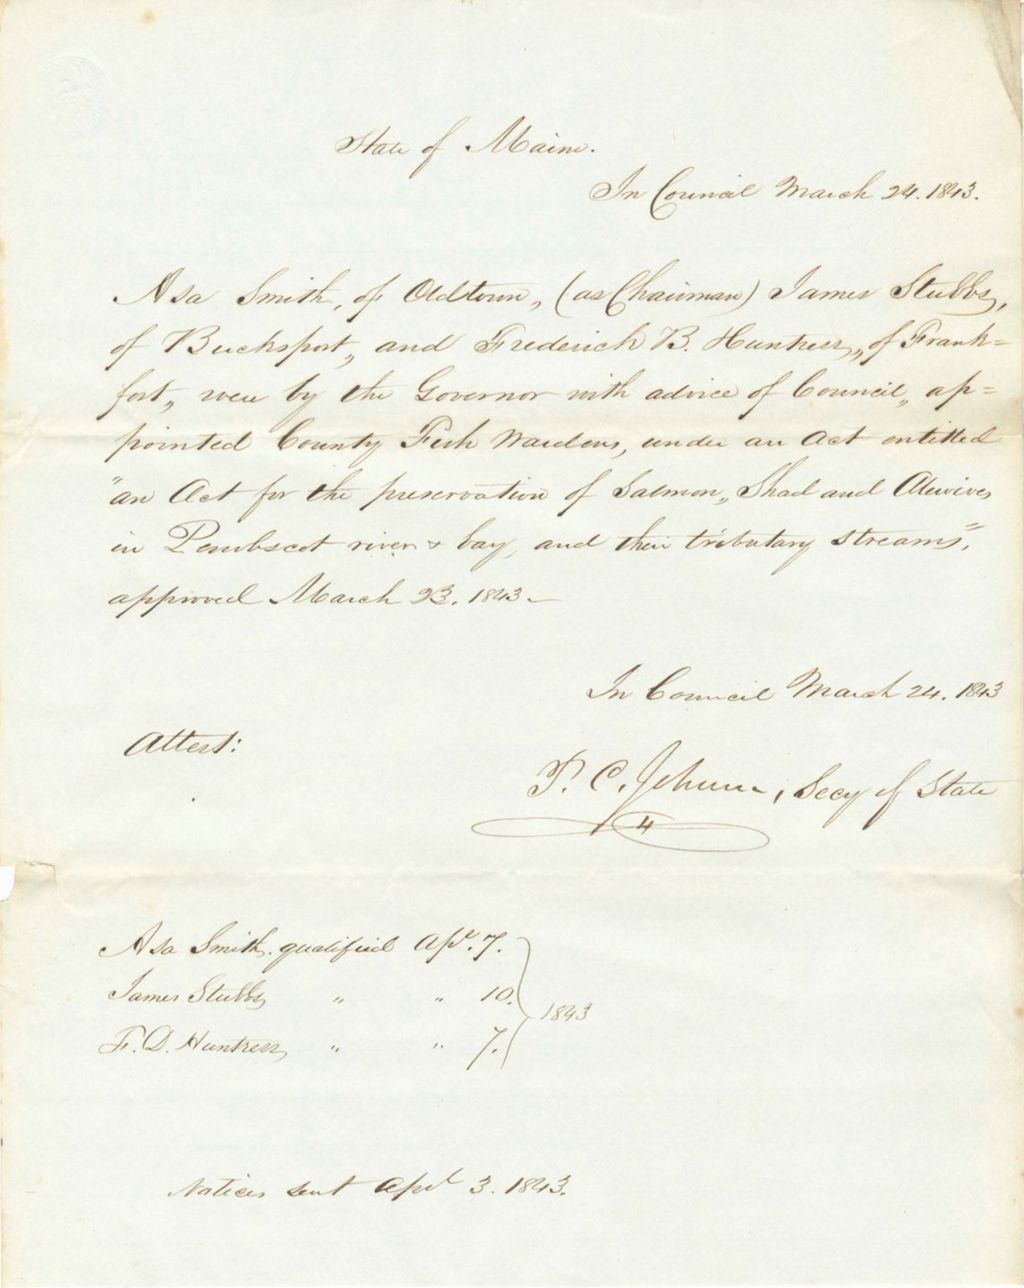 State of Maine.
In Council March 24. 1843.
Asa Smith, of Oldtown, (as Chairman) James Stubbs,
of Bucksport, and Frederick B. Huntress, of Frank=
fort, were by the Governor with advice of Council, ap=
pointed County Fish Wardens, under an Act entitled
"an Act for the preservation of Salmon, Shad and Alewives
in Penobscot river & bay, and their tributary streams",
approved March 23. 1843 —
In Council March 24. 1843
Attest:
P. C. Johnson, Secy of State
Asa Smith. qualified Apl. 7.
James Stubbs " " 10.
1843
F. D. Huntress, " " 7.
Notices sent Apl 3. 1843.